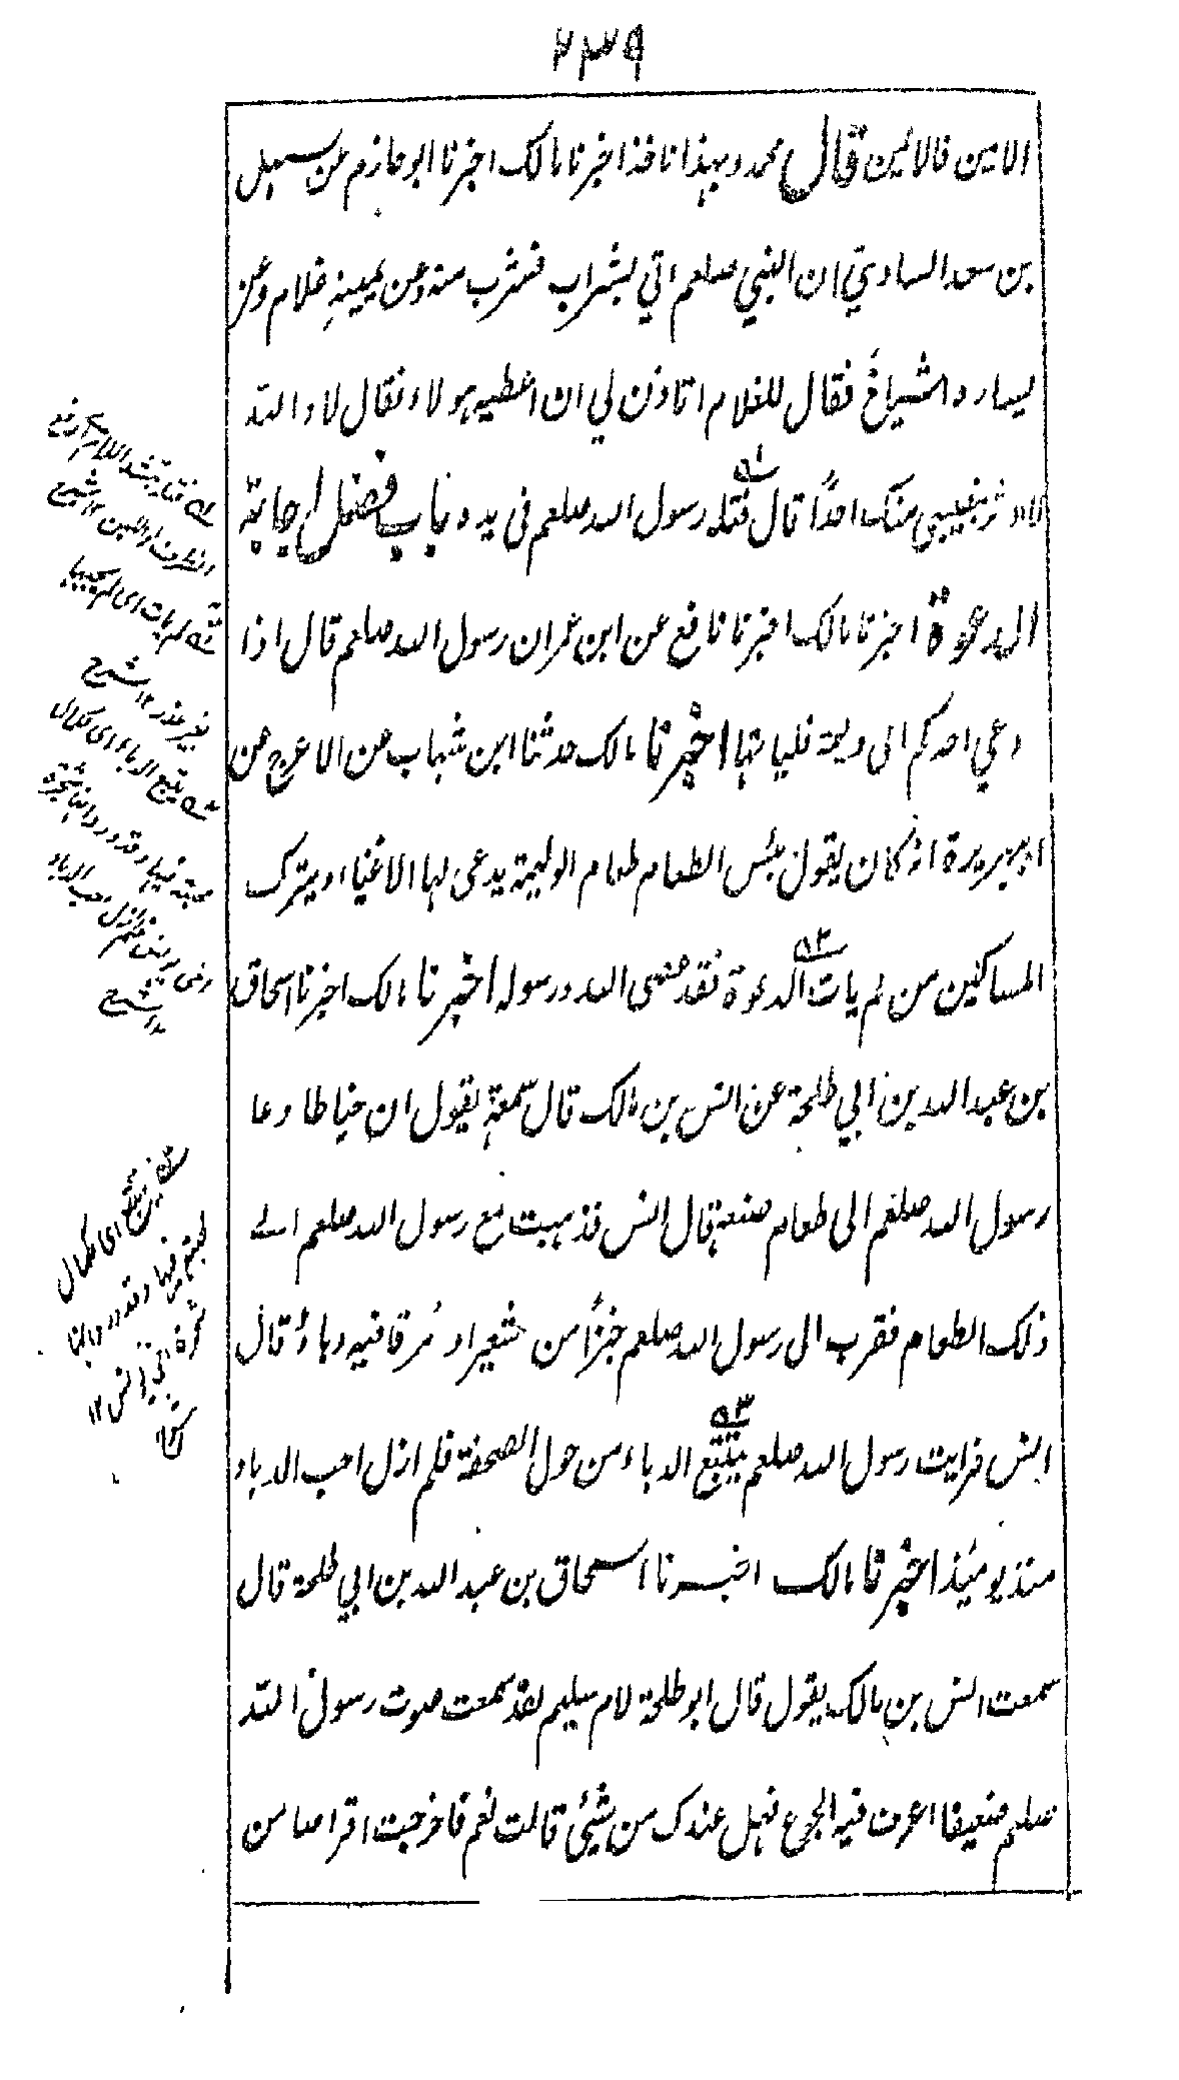 ٢٣٩
الايمن فالايمن قال محمد وبهذا ناخذ اخبرنا مالك اخبرنا ابو حازم عن سهل
بن سعد الساعدي ان النبي صلعم اتي بشراب فشرب منه وعن يمينه غلام وعن
يساره اشياخ فقال للغلام اتاذن لي ان اعطيه هولاء فقال لا والله
لا اوثر بنصيبي منك احدًا قال فتله رسول الله صلعم في يده باب فضل اجابة
الدعوة اخبرنا مالك اخبرنا نافع عن ابن عمر ان رسول الله صلعم قال اذا
دعي احدكم الى وليمة فلياتها اخبرنا مالك حدثنا ابن شهاب عن الاعرج عن
ابيهريرة انه كان يقول بئس الطعام طعام الوليمة يدعى لها الاغنياء ويترك
المساكين من لم يات الدعوة فقد عصى الله ورسوله اخبرنا مالك اخبرنا اسحاق
بن عبد الله بن ابي طلحة عن انس بن مالك قال سمعته يقول ان خياطا دعا
رسول الله صلعم الى طعام صنعه قال انس فذهبت مع رسول الله صلعم الے
ذلك الطعام فقرب الى رسول الله صلعم خبزًا من شعير او مرقا فيه دباءُ قال
انس فرايت رسول الله صلعم يتتبع الدباء من حول الصحفة فلم ازل احب الدباء
منذ يومئذ اخبرنا مالك اخبرنا اسحاق بن عبد الله بن ابي طلحة قال
سمعت انس بن مالك يقول قال ابو طلحة لام سليم لقد سمعت صوت رسول الله
صلعم ضعيفا اعرف فيه الجوع فهل عندك من شيئ قالت نعم فاخرجت اقراصا من